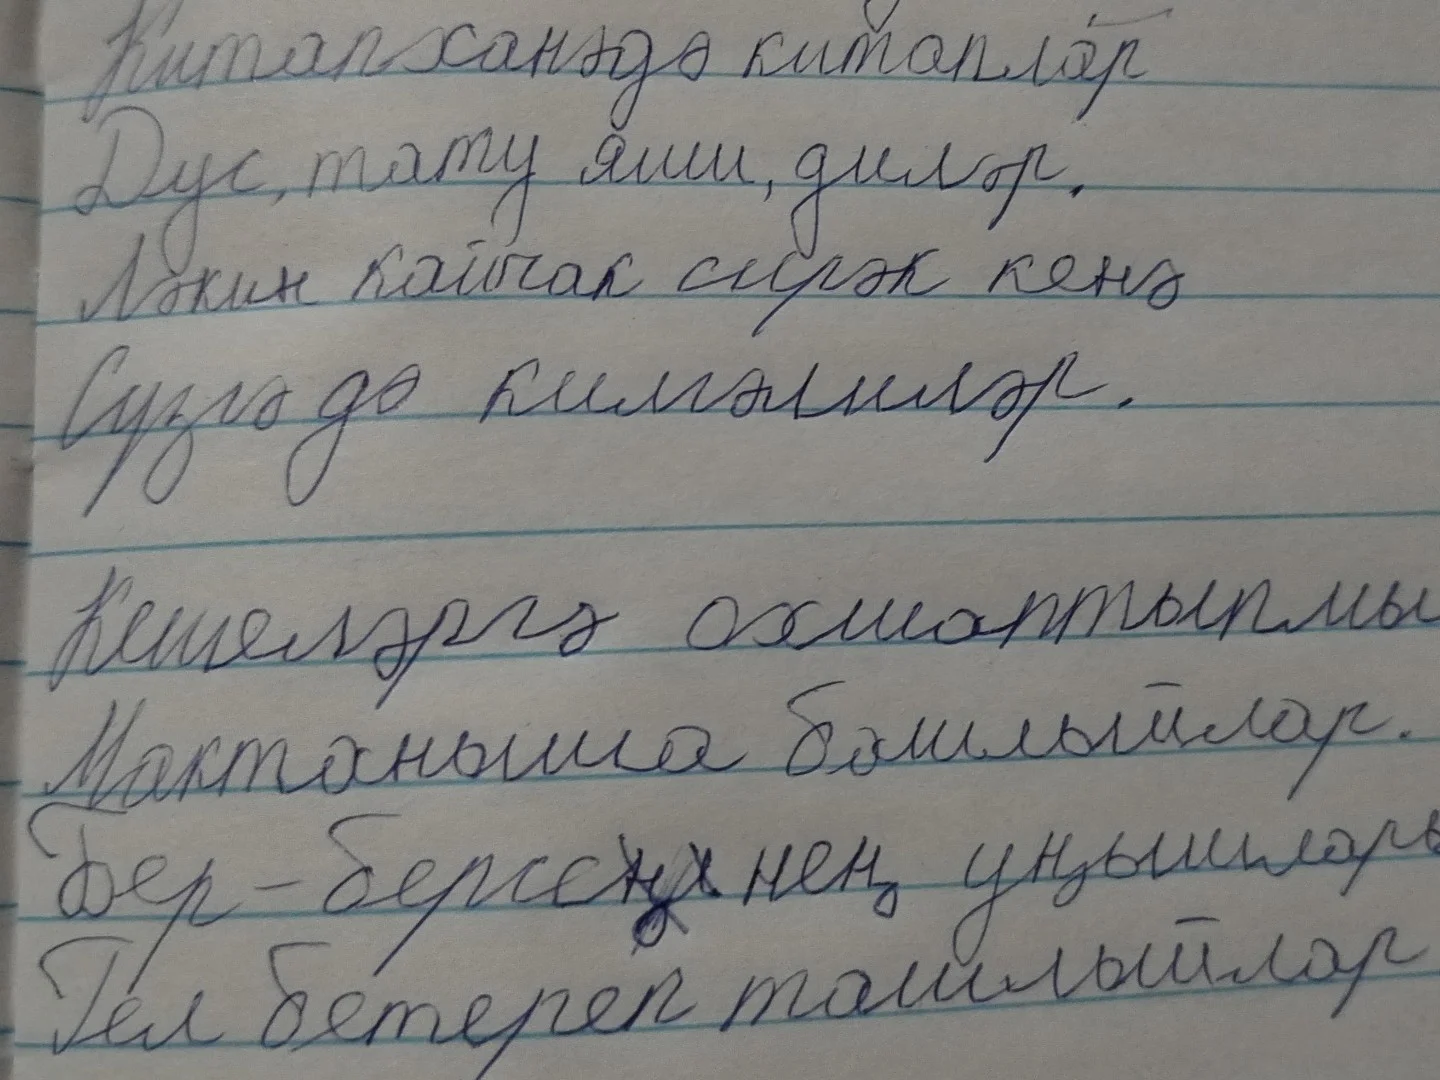 Китапханәдә китаплар
Дус, тату яши, диләр.
Ләкин кайчак сирәк кенә
Сүзгә дә килгәлиләр.
Кешеләргә охшаптырмы
Мактаныша башлыйлар.
Бер-берсенең уңышлары
Гел бетереп ташлыйлар